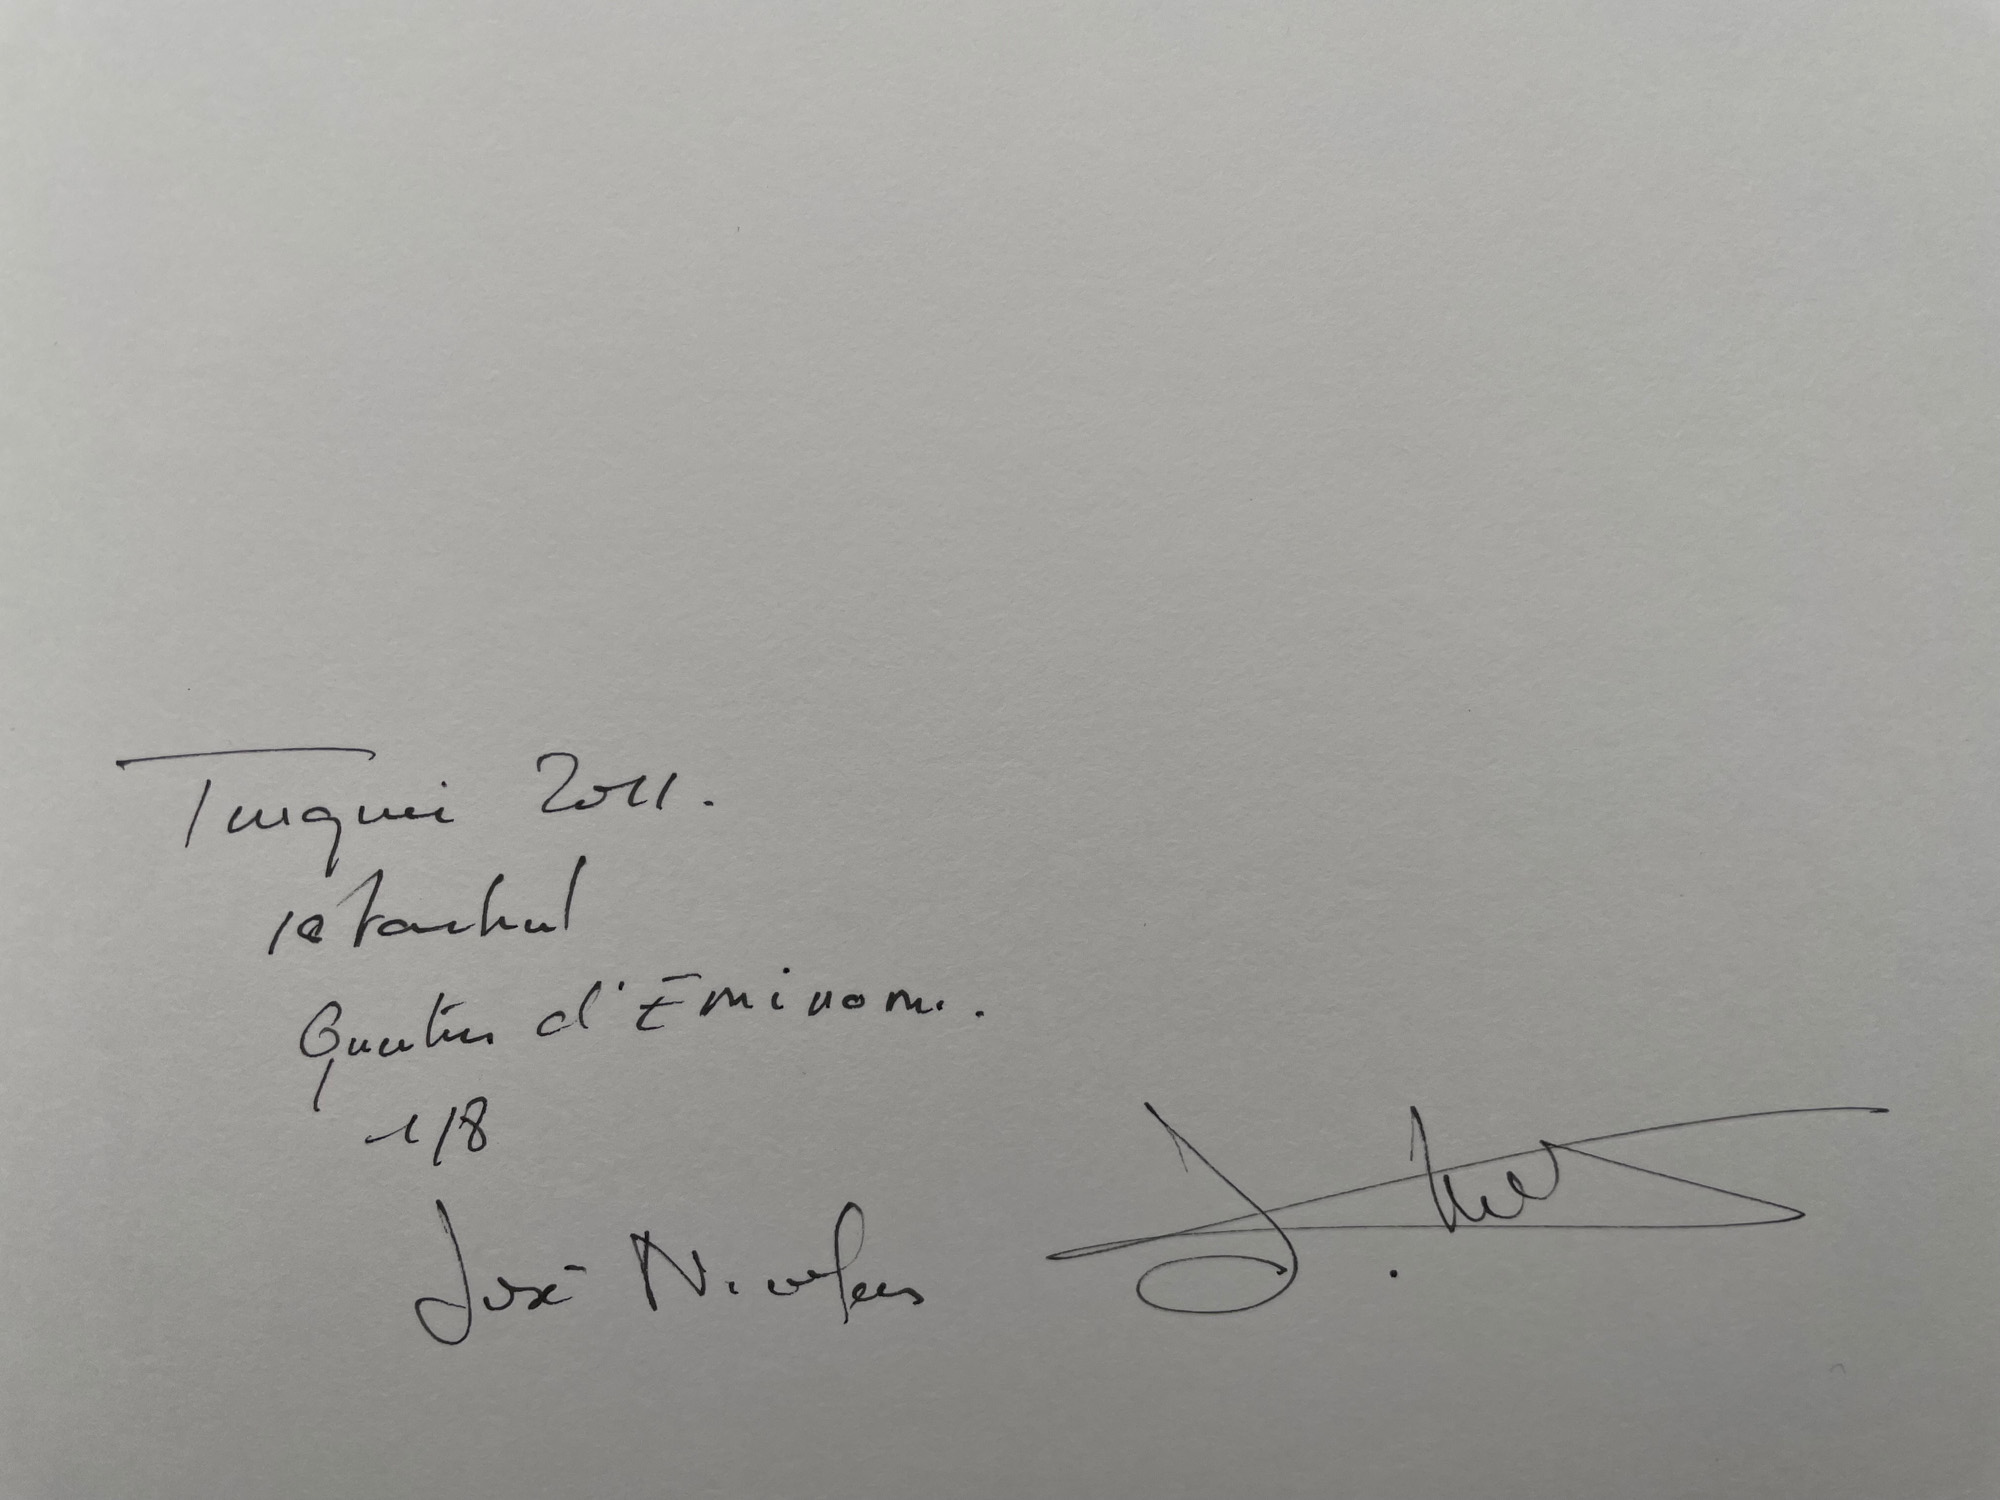 Turquie 2011.
Istanbul
Quartier d'Eminonu.
1/8
José Nicolas